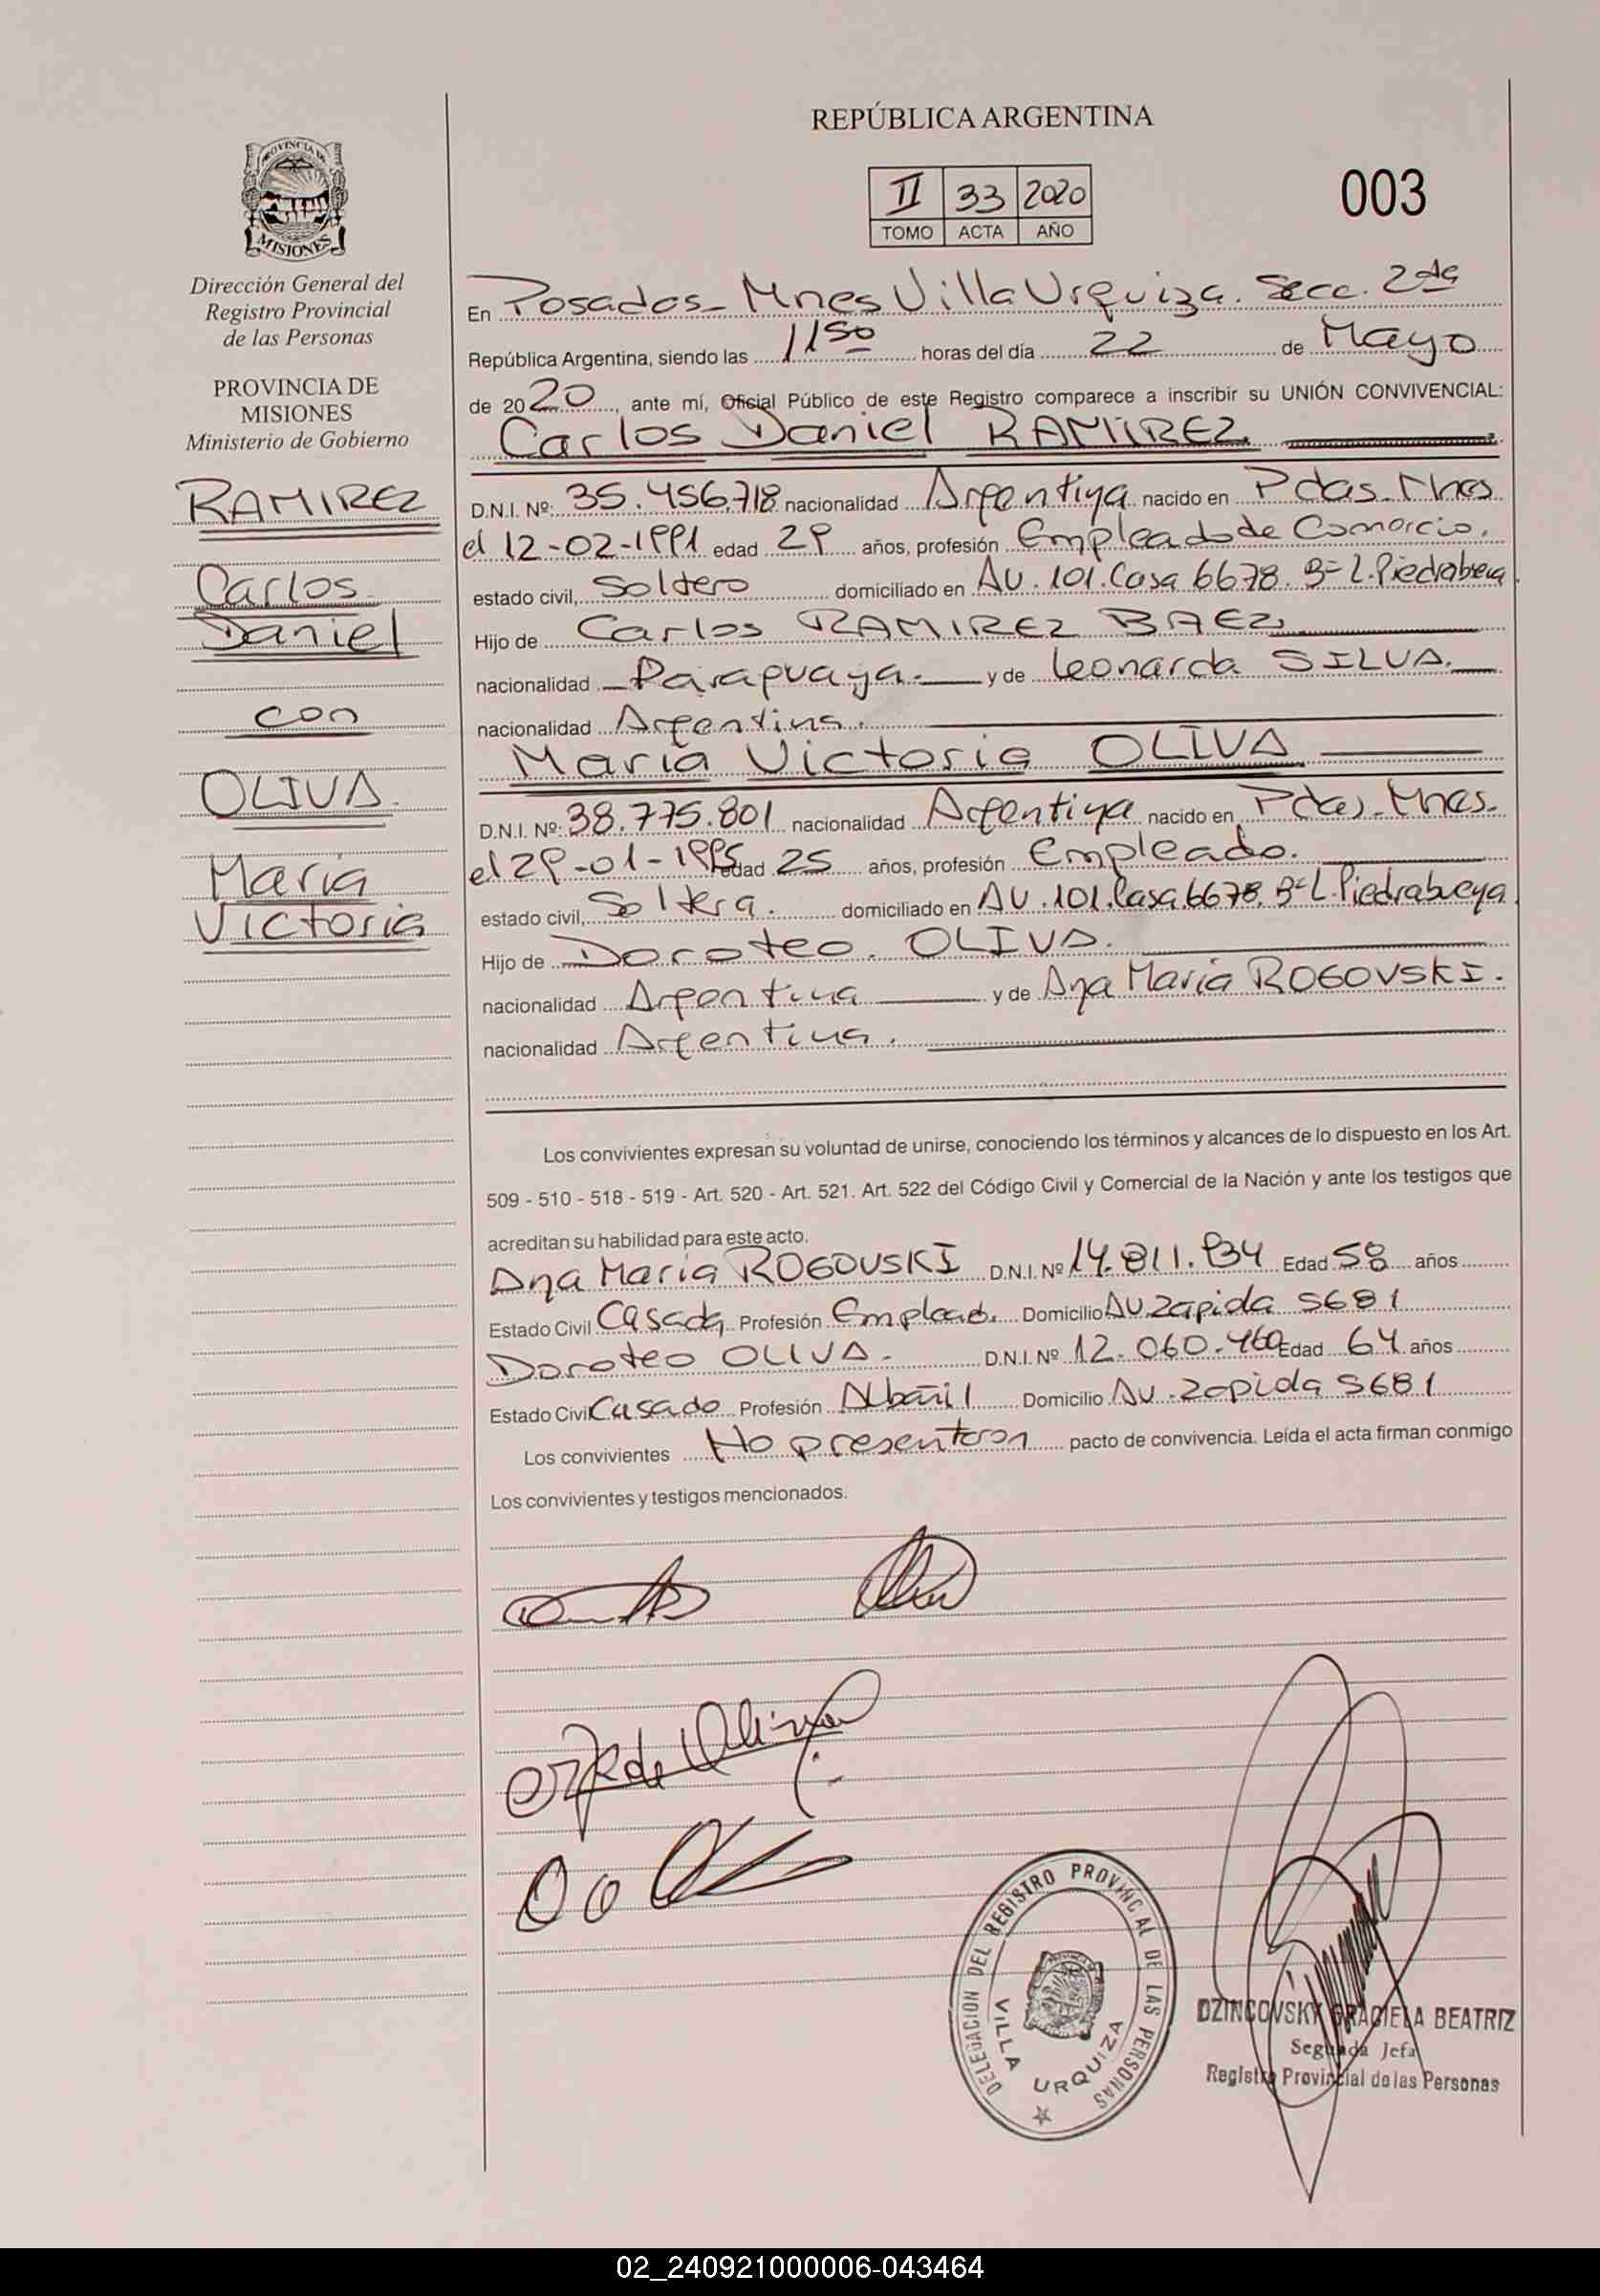 REPÚBLICA ARGENTINA
II 33 2020
TOMO ACTA AÑO
003
PROVINCIA DE
MISIONES
Dirección General del
Registro Provincial
de las Personas
PROVINCIA DE
MISIONES
Ministerio de Gobierno
RAMIREZ
Carlos
Daniel
con
OLIVA.
María
Victoria
En Posadas - Mnes Villa Urquiza. Secc. 2da
República Argentina, siendo las 1150 horas del día 22 de Mayo
de 2020, ante mí, Oficial Público de este Registro comparece a inscribir su UNIÓN CONVIVENCIAL:
Carlos Daniel RAMIREZ
D.N.I. Nº: 35.456.718 nacionalidad Argentina nacido en Pdas. Mnes
el 12-02-1991 edad 29 años, profesión Empleado de Comercio.
estado civil, Soltero domiciliado en Av. 101. Casa 6678. Bº L. Piedrabuena
Hijo de Carlos RAMIREZ BAEZ
nacionalidad Paraguaya. y de Leonarda SILVA.
nacionalidad Argentina.
María Victoria OLIVA
D.N.I. Nº: 38.775.801 nacionalidad Argentina nacido en Pdas. Mnes.
el 29-01-1995 edad 25 años, profesión Empleado.
estado civil, Soltera. domiciliado en Av. 101. Casa 6678. Bº L. Piedrabuena
Hijo de Doroteo. OLIVA.
nacionalidad Argentina y de Ana María ROGOVSKI.
nacionalidad Argentina.
Los convivientes expresan su voluntad de unirse, conociendo los términos y alcances de lo dispuesto en los Art.
509 - 510 - 518 - 519 - Art. 520 - Art. 521. Art. 522 del Código Civil y Comercial de la Nación y ante los testigos que
acreditan su habilidad para este acto.
Ana María ROGOVSKI D.N.I. Nº 14.811.934 Edad 58 años
Estado Civil Casada Profesión Emplead. Domicilio Av. Zapiola 5681
Doroteo OLIVA. D.N.I. Nº 12.060.460 Edad 64 años
Estado Civil Casado Profesión Albañil Domicilio Av. Zapiola 5681
Los convivientes No presentaron pacto de convivencia. Leída el acta firman conmigo
Los convivientes y testigos mencionados.
DELEGACION DEL REGISTRO PROVINCIAL DE LAS PERSONAS
VILLA URQUIZA
DZINCOVSKY GRACIELA BEATRIZ
Segunda Jefa
Registro Provincial de las Personas
02_240921000006-043464